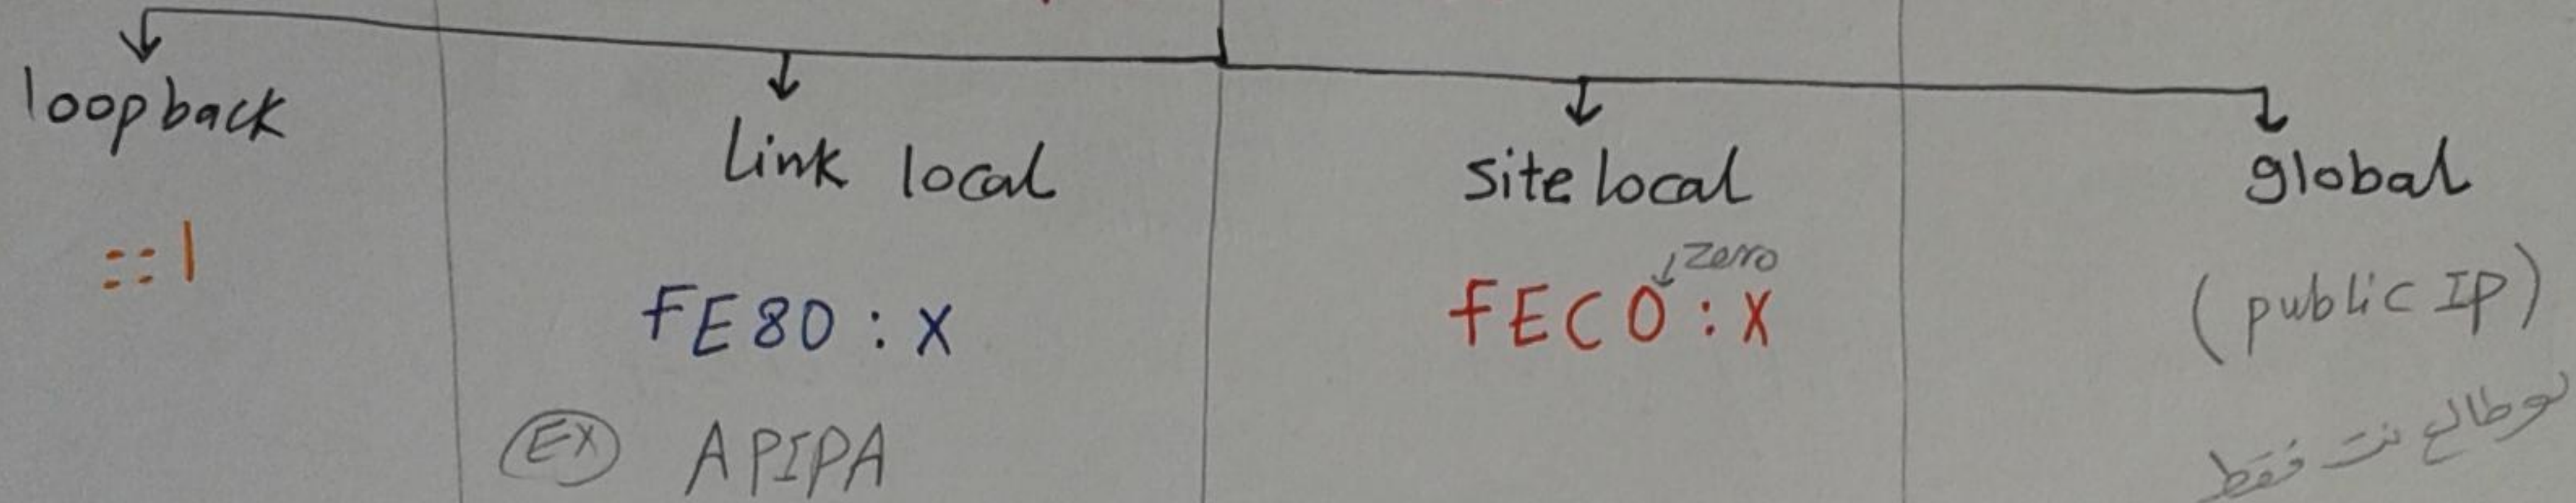 loopback
::1
Link local
FE80 : X
EX APIPA
site local
zero
FEC0 : X
global
(public IP)
لو طالع نت فقط